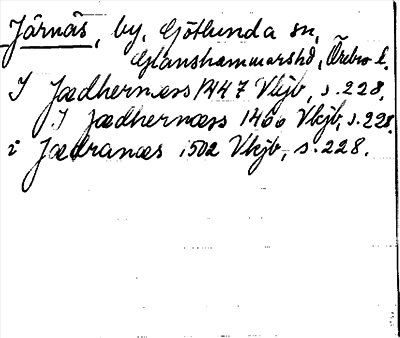 Järnäs, by, Götlunda sn,
Glanshammarshd, Örebro l.
I Jædhernæss 1447 Vkjb, s. 228.
I Jædhernæss 1460 Vkjb, s. 228.
i Jædranæs 1502 Vkjb, s. 228.